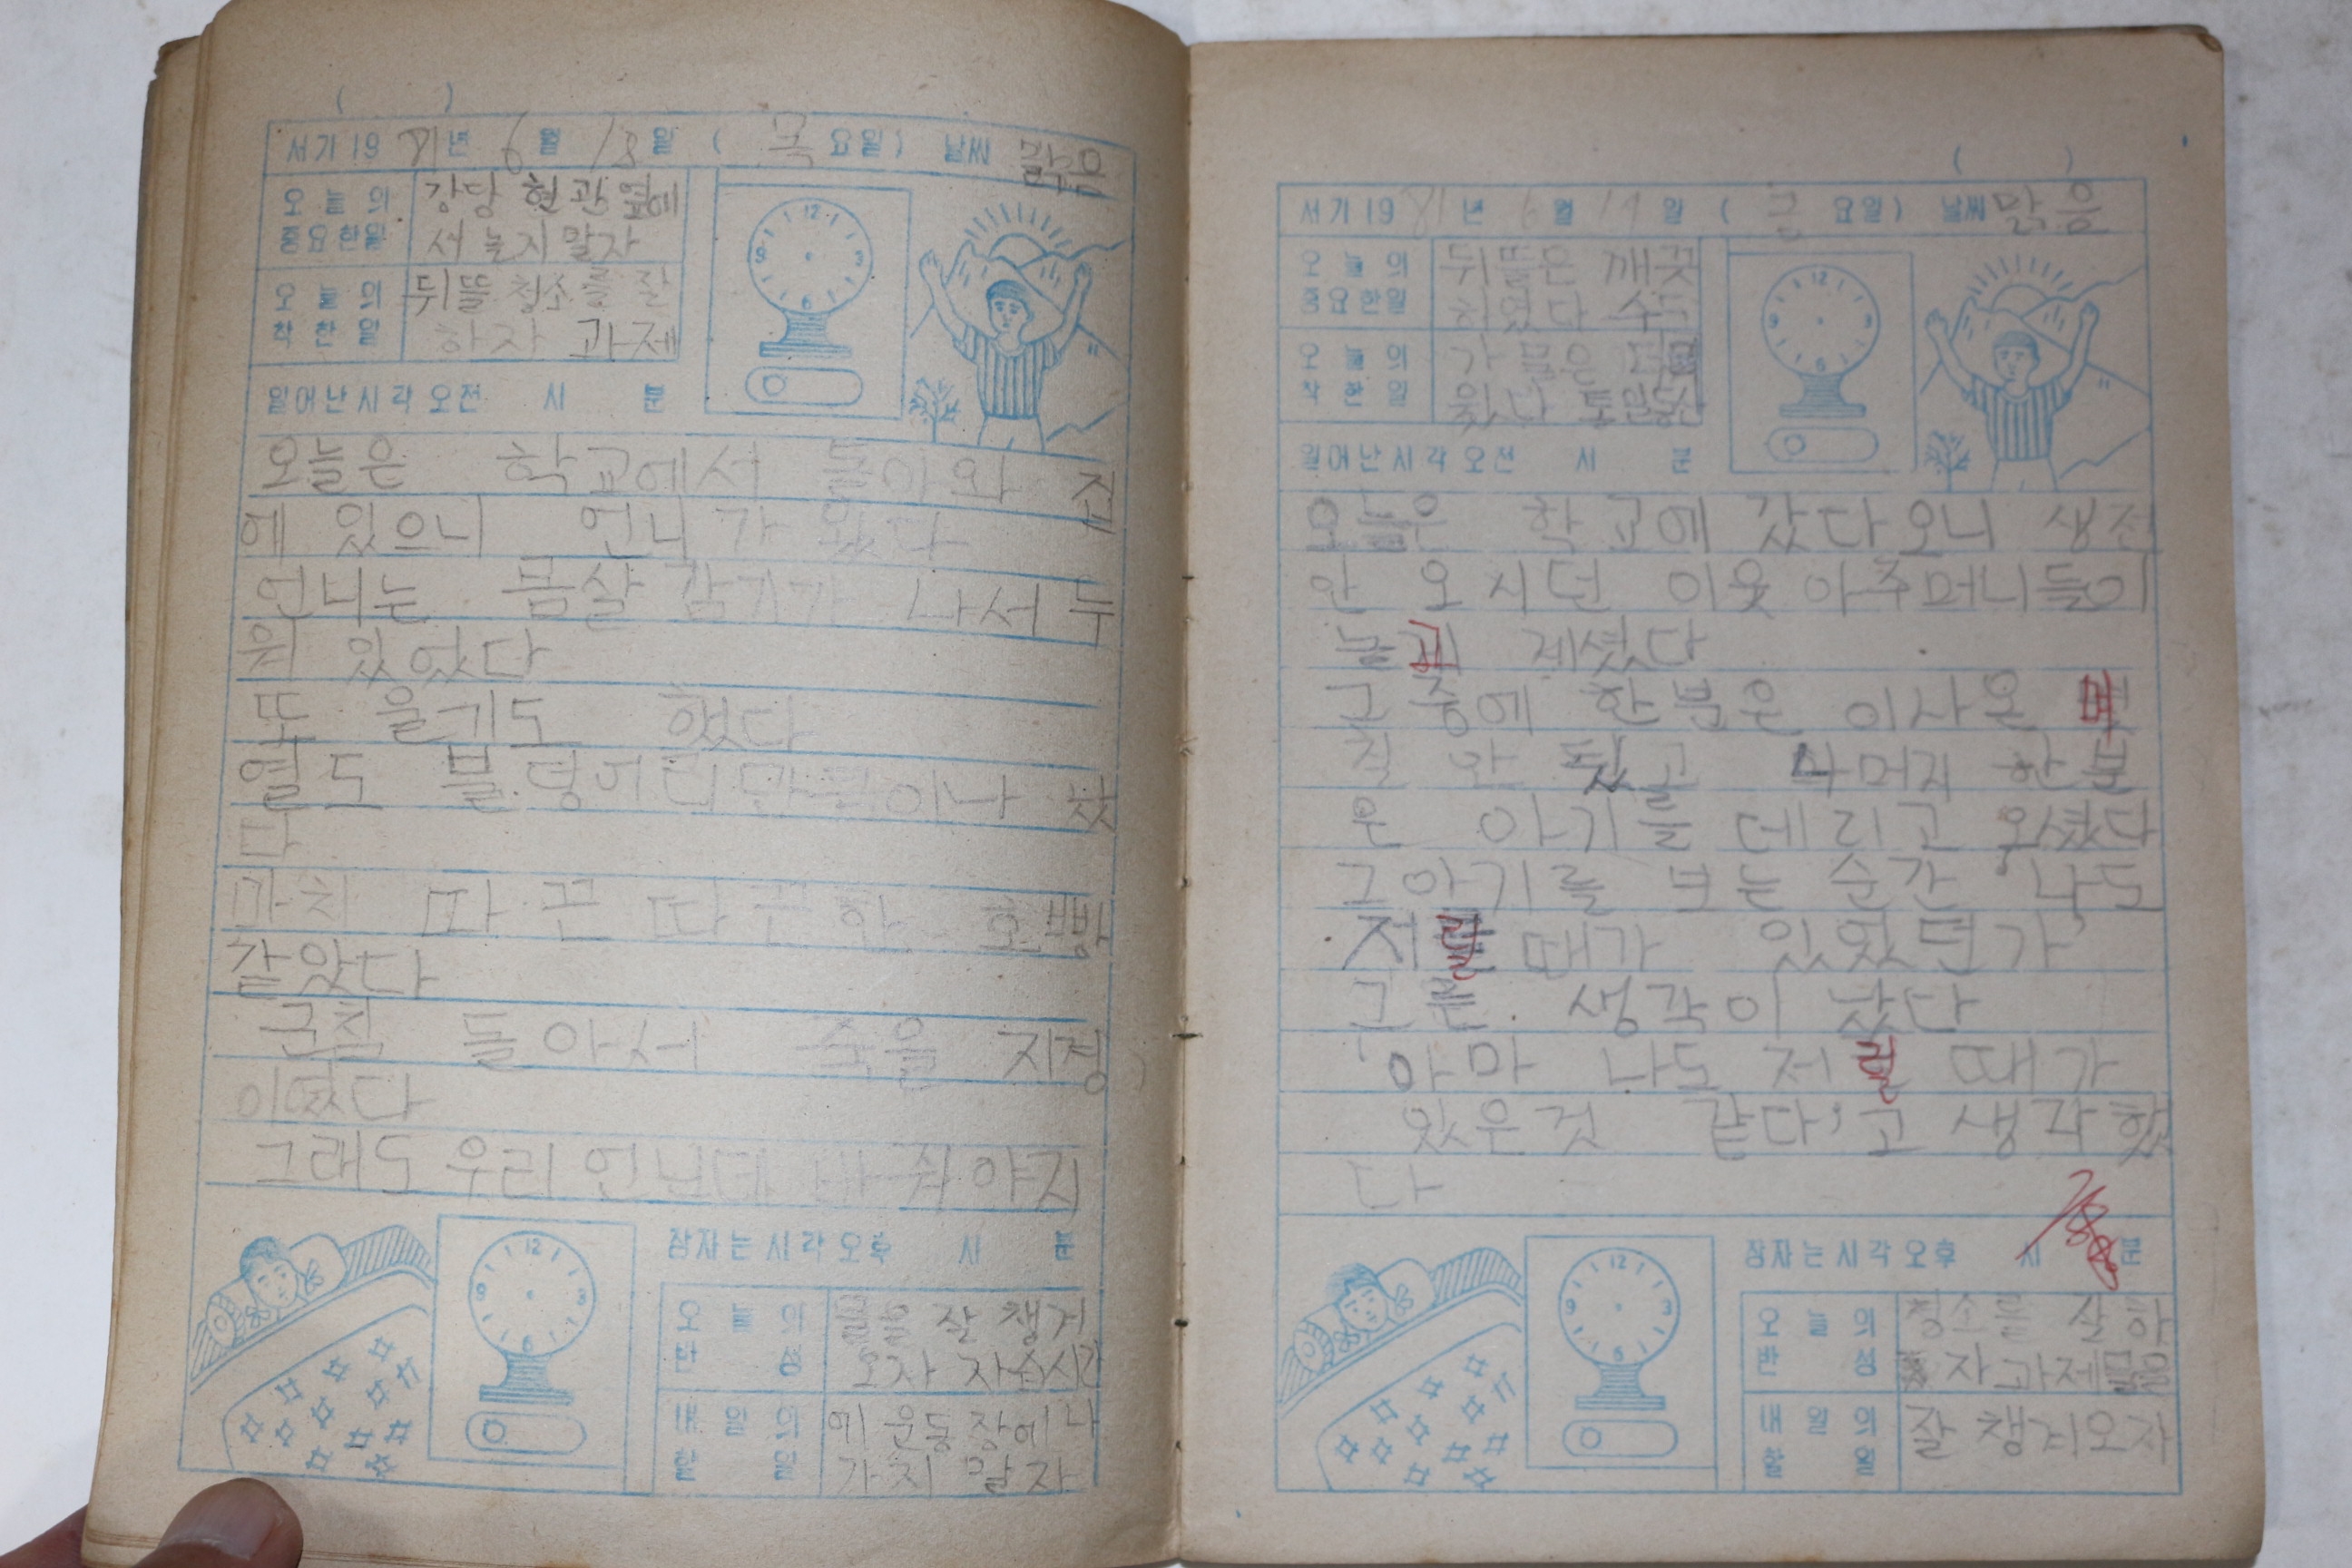 ( )
서기 19 81년 6월 18일 ( 목요일) 날씨 맑음
오늘의 중요한일
강당 현관 옆에
서 놀지 말자
오늘의 착한일
뒤뜰 청소를 잘
하자 과제
일어난시각 오전 시 분
오늘은 학교에서 돌아와 집
에 있으니 언니가 왔다
언니는 몸살 감기가 나서 누
워 있었다
또 울기도 했다
열도 불덩어리만큼이나 났
다
마치 따끈따끈한 호빵
같았다
돌아서 죽을 지경
이였다
그래도 우리 언닌데 봐줘야지
잠자는시각 오후 시 분
오늘의 반성
물을 잘 챙겨
오자 자습시간
내일의 할일
에 운동장에 나
가지 말자
( )
서기 19 81년 6월 19일 ( 금요일) 날씨 맑음
오늘의 중요한일
뒤뜰은 깨끗
하였다 수도
오늘의 착한일
가 물은
통일동산
일어난시각 오전 시 분
오늘은 학교에 갔다오니 생전
안 오시던 이웃 아주머니들이
놀러 계셨다
그 중에 한분은 이사온
칠 안 됬고 나머지 한분
은 아기를 데리고 오셨다
그아기를 보는 순간 '나도
저럴 때가 있었던가'
그런 생각이 났다
'아마 나도 저럴 때가
있은것 같다'고 생각했
다
잠자는시각 오후 시 분
오늘의 반성
청소를 잘 하
자 과제물을
내일의 할일
잘 챙겨오자